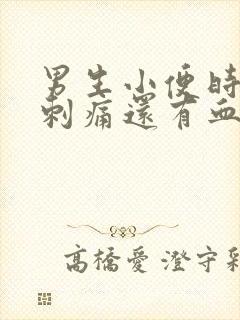 男生小便時
刺痛還有血
高橋愛 澄守彩